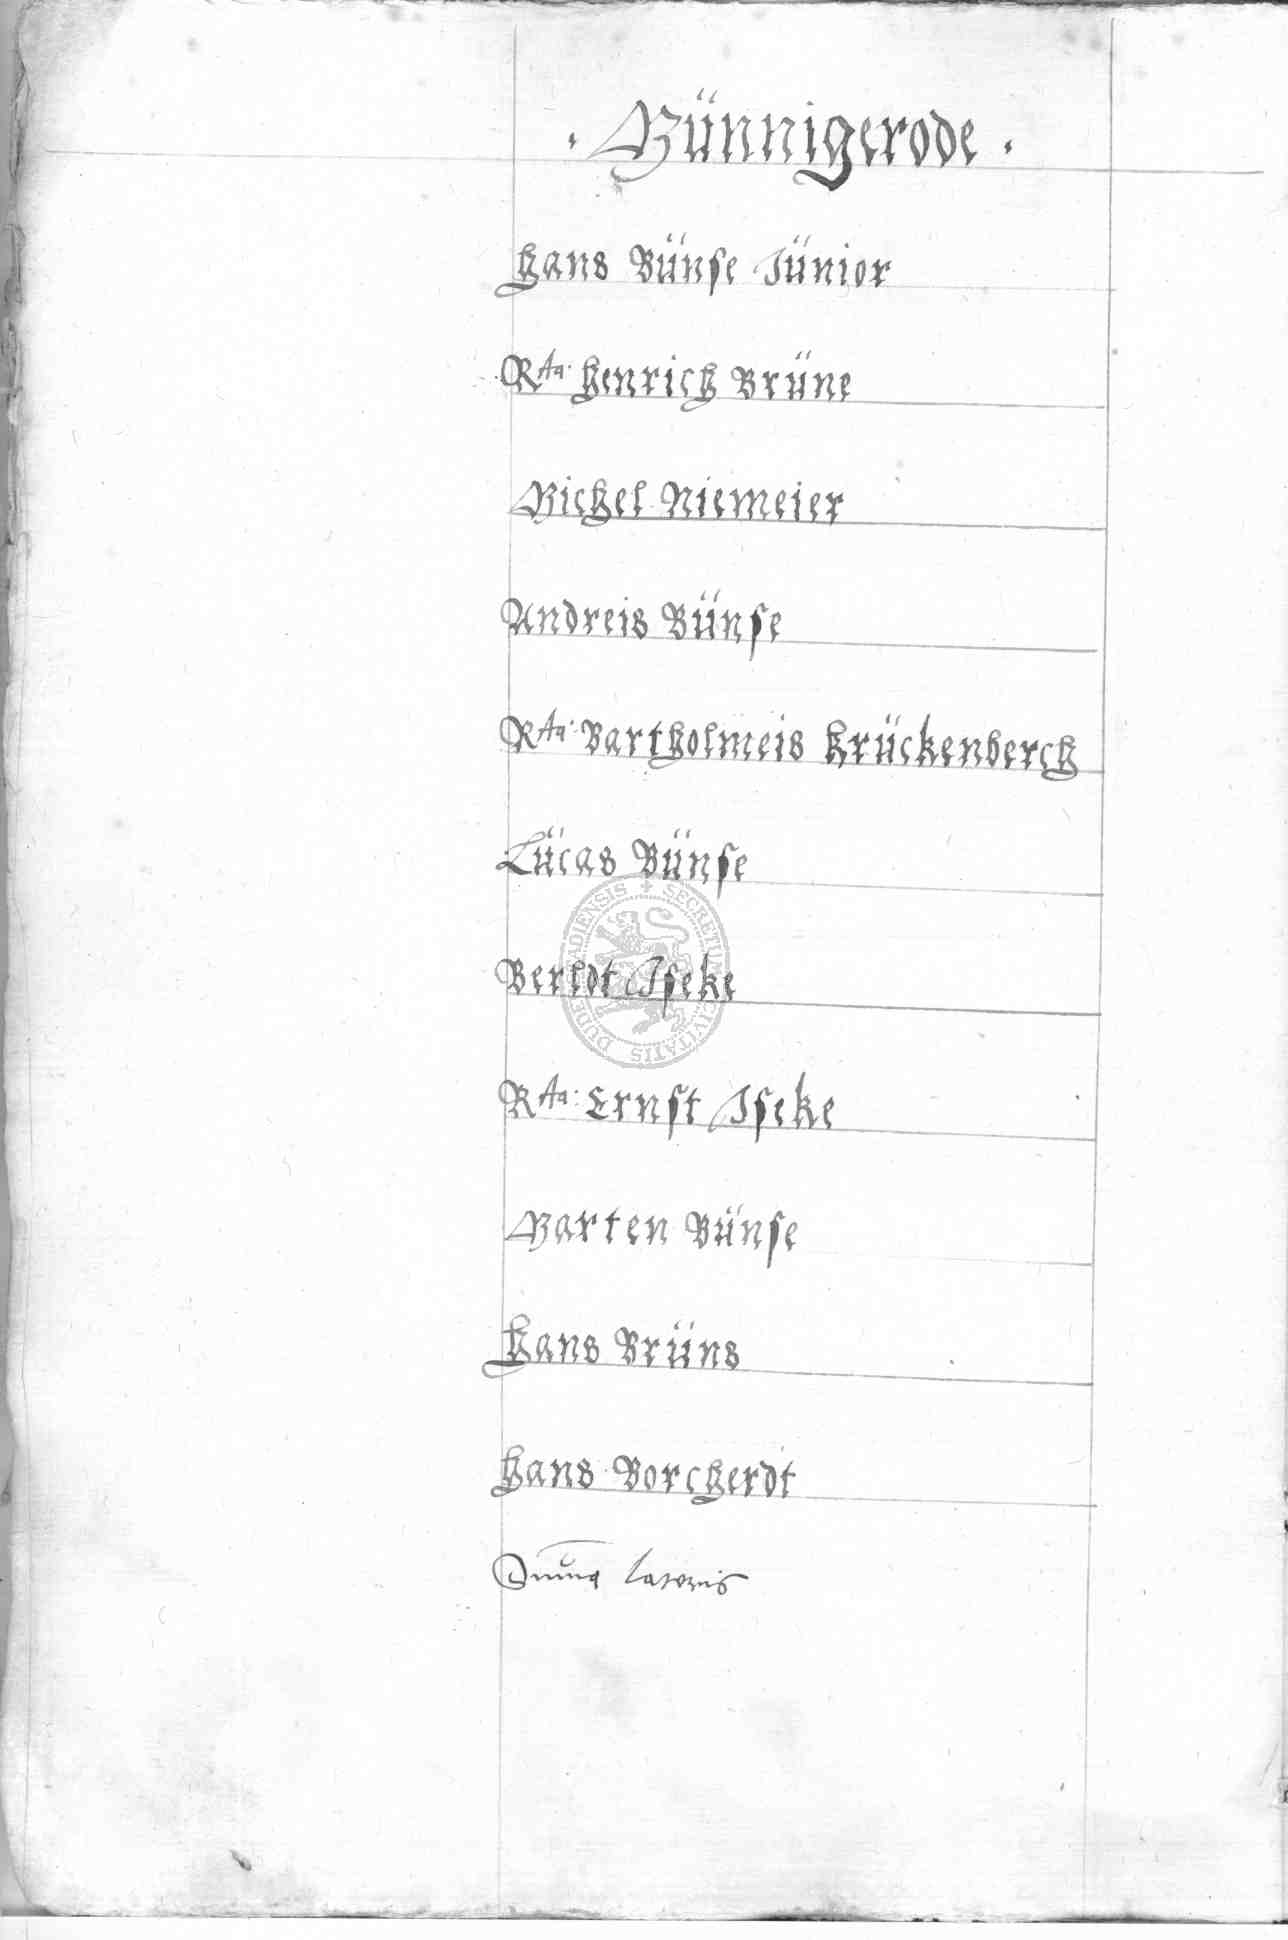 · Münnigerode ·
Hans Bünse Jünior
Rta: Henrich Brüne
Michel Niemeier
Andreis Bünse
Rta: Bartholmeis Krückenberch
Lücas Bünse
Berldt Iseke
Rta: Ernst Iseke
Marten Bünse
Hans Brüns
Hans Borcherdt
Summa lateris
SECRETUM CIVITATIS DUDERSTADIENSIS